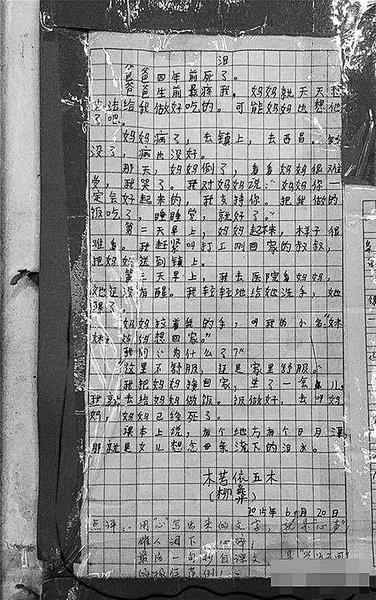 泪
爸爸四年前死了。
爸爸生前最疼我,妈妈就天天想
办法给我做好吃的。可能妈妈也想他
了吧。
妈妈病了,去镇上,去西昌。钱
没了,病也没好。
那天,妈妈倒了,看看妈妈很难
受,我哭了。我对妈妈说:“妈妈你一
定会好起来的,我支持你。把我做的
饭吃了,睡睡觉,就好了。”
第二天早上,妈妈起不来,样子很
难看。我赶紧叫打工刚回家的叔叔,
把妈妈送到镇上。
第三天早上,我去医院看妈妈,
她还没有醒。我轻轻地给她洗手,她
醒了。
妈妈拉着我的手,叫我的小名:“妹
妹,妈妈想回家。”
我问:“为什么了?”
“这里不舒服,还是家里舒服。”
我把妈妈接回家,坐了一会儿,
我就去给妈妈做饭。饭做好,去叫妈
妈,妈妈已经死了。
课本上说,有个地方有个日月潭,
那就是女儿想念母亲流下的泪水。
木苦依五木
(柳彝)
2015年6月20日
点评:用“心”写出来的文字,就是“心声”
催人泪下
最后一句抄自课文